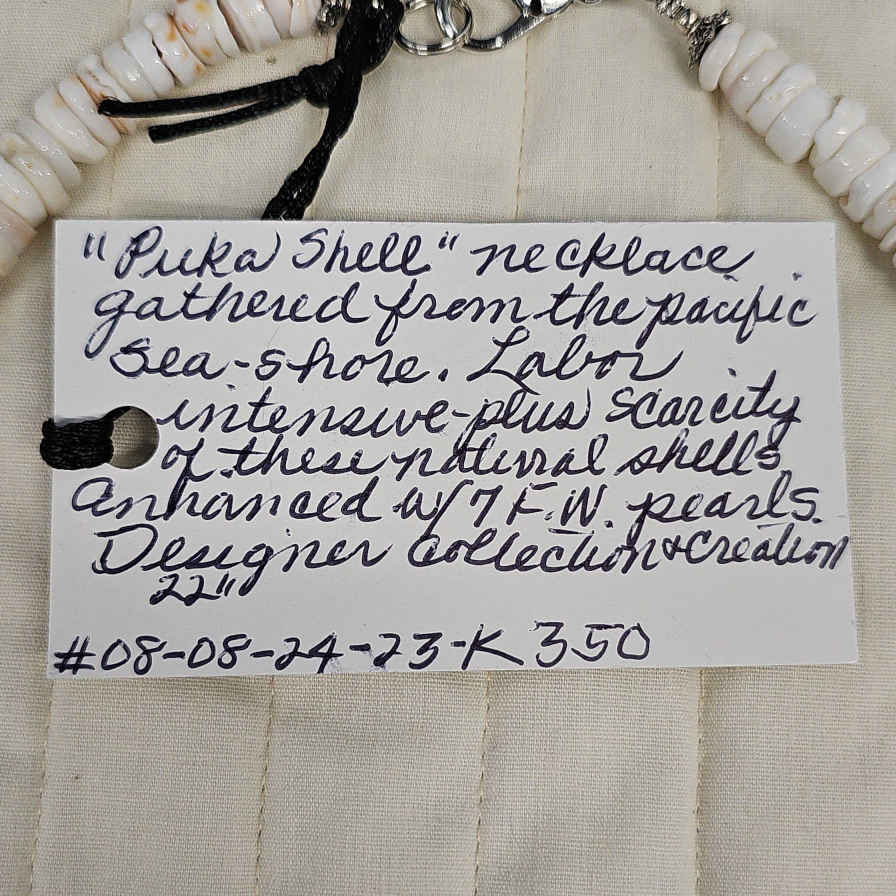 "Puka Shell" necklace
gathered from the pacific
Sea-shore. Labor
intensive-plus scarcity
of these natural shells
Enhanced w/7 F.W. pearls.
Designer Collection & Creation
22"
#08-08-24-23-K 350